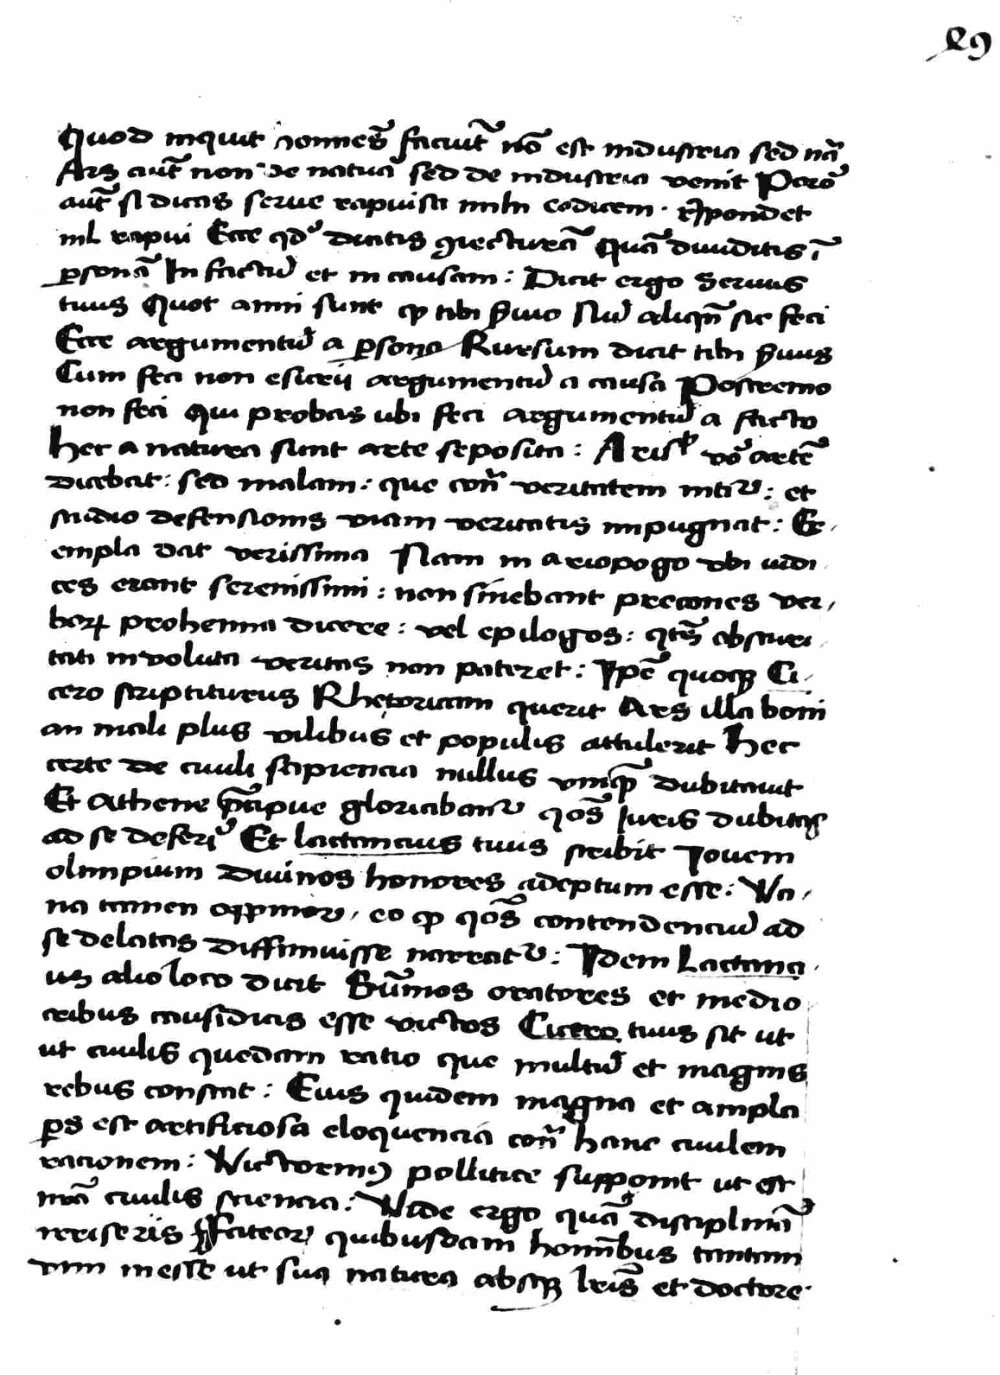 89
Quod inquit o͠mnes faciũt nõ est industria sed nã
Ars aut̃ non de natura sed de industria venit Porõ
aut̃ si dicas serue rapuisti mihi codicem · r̃spondet
nil rapui Ecce qd̾ dicitis ꝯiecturã Quã diuiditis ĩ
ꝑsonã In factũ et in causam : Dicit ergo Seruus
tuus Quot anni sunt ꝙ tibi ẜuio Nũ aliqñ sic feci
Ecce argumentũ a ꝑsona Rursum dicit tibi ẜuus
Cum feci non esurii argumentũ a causa Postremo
non feci Qui probas ubi feci argumentũ a facto
Hec a natura sunt arte seposita : Arisł vo᷑ artẽ
dicebat : sed malam : que coñ veritatem intit᷑ : et
studio defensionis viam veritatis impugnat : Ex⸗
empla dat verissima Nam in ariopogo vbi iudi⸗
ces erant serenissimi : non sinebant precones ver⸗
borꝝ prohemia dicere : vel epilogos : qt̃s obscuri⸗
tati inuoluta veritas non pateret : Ip̃e quoqꝫ Ci⸗
cero scriptiturus Rhetoricam querit Ars illa boni
an mali plus vilibus et populis attulerit Hec
certe de ciuili sapiencia nullus vnqꝫ dubitauit
Et Athene p̃cipue gloriabant᷑ qõs Iuris dubitas
ad se deferi᷑ Et lactancius tuus scribit Jouem
olimpium diuinos honores adeptum esse : Va⸗
na tamen opinior / eo ꝙ qõs contendenciũ ad
se delatas diffiniuisse narrat᷑ : Idem Lactanci⸗
us alio loco dicit Sũmos oratores et medio
cribus causidicis esse victos Cicero tuus sit ut
ut ciuilis quedam ratio que multũ et magnis
rebus constat : Eius quidem magna et ampla
ꝑs est artificiosa eloquencia coñ hanc ciuilem
racionem : Victorinꝰ pollitice supponit ut est
mã ciuilis sciencia : Vide ergo quã disciplinã
neiiseriis Fateor quibusdam hominibus tantam
vim inesse ut sua natura absqꝫ lr̃is et doctore·